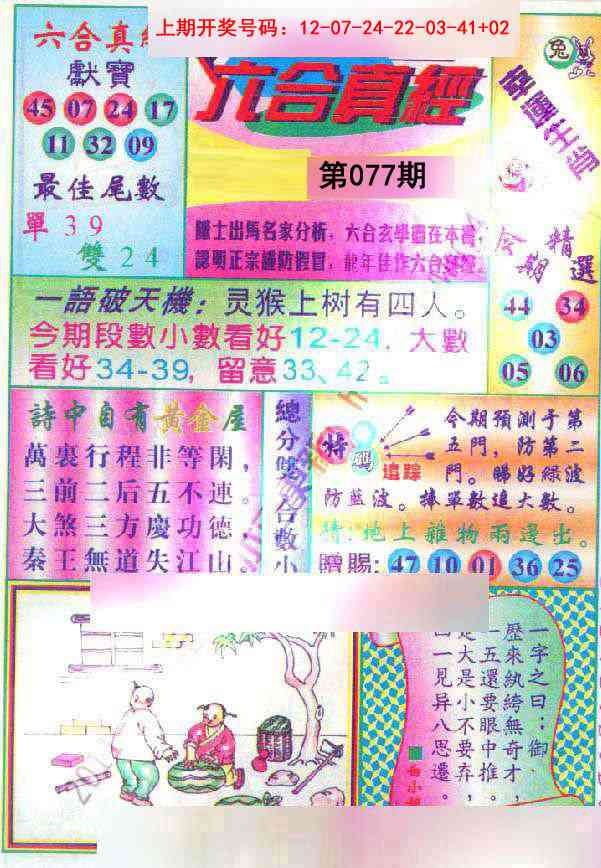 上期开奖号码：12-07-24-22-03-41+02
六合真
獻寶
45 07 24 17
11 32 09
最佳尾數
單39
雙24
六合真經
第077期
兔
幸運生肖
隱士出馬名家分析，六合玄學盡在本書，
認明正宗謹防假冒，龍年佳作六合真經。
今期精選
44 34
03
05 06
一語破天機：灵猴上树有四人。
今期段數小數看好12-24，大數
看好34-39，留意33、42。
詩中自有黃金屋
萬裏行程非等閑，
三前二后五不連。
大煞三方慶功德，
秦王無道失江山。
總分雙合數小
特碼追踪
今期預測予第
五門，防第二
門。睇好綠波
防藍波。捧單數追大數。
猜:地上雜物兩邊出。
贈賜: 47 10 01 36 25
一字之曰：御，
歷來紈絝無奇才，
一五還要眼中推。
是大是小不要弃，
一見异八思遷。